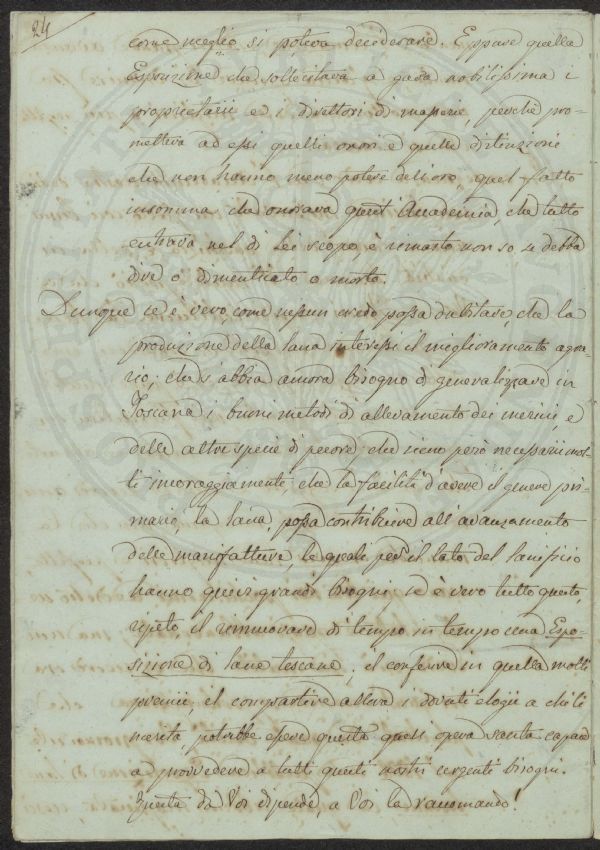 24
come meglio si poteva desiderare. Eppure quella
Esposizione che sollecitava a gara nobilissima i
proprietarii e i direttori di masserie, perchè pro-
metteva ad essi quelli onori e quelle distinzioni
che non hanno meno potere dell'oro, quel fatto
insomma che onorava quest'Accademia, che tutto
entrava nel di Lei scopo, è rimasto non so se debba
dire o dimenticato o morto.
Dunque se è vero, come nessun credo possa dubitare, che la
produzione della lana interessi il miglioramento agra-
rio; che si abbia ancora bisogno di generalizzare in
Toscana i buoni metodi di allevamento dei merini, e
delle altre specie di pecore; che sieno però necessarii mol-
ti incoraggiamenti che la facilità d'avere il genere pri-
mario, la lana, possa contribuire all'avanzamento
delle manifatture, le quali per il lato del lanificio
hanno quivi grandi bisogni; se è vero tutto questo,
ripeto, il rinnuovare di tempo in tempo una Espo-
sizione di lane toscane, il conferire in quella molti
premii, il compartire allora i dovuti elogii a chi li
merita potrebbe essere questa quasi opera santa capace
a provvedere a tutti questi nostri urgenti bisogni.
Questa da Voi dipende, a Voi la raccomando!